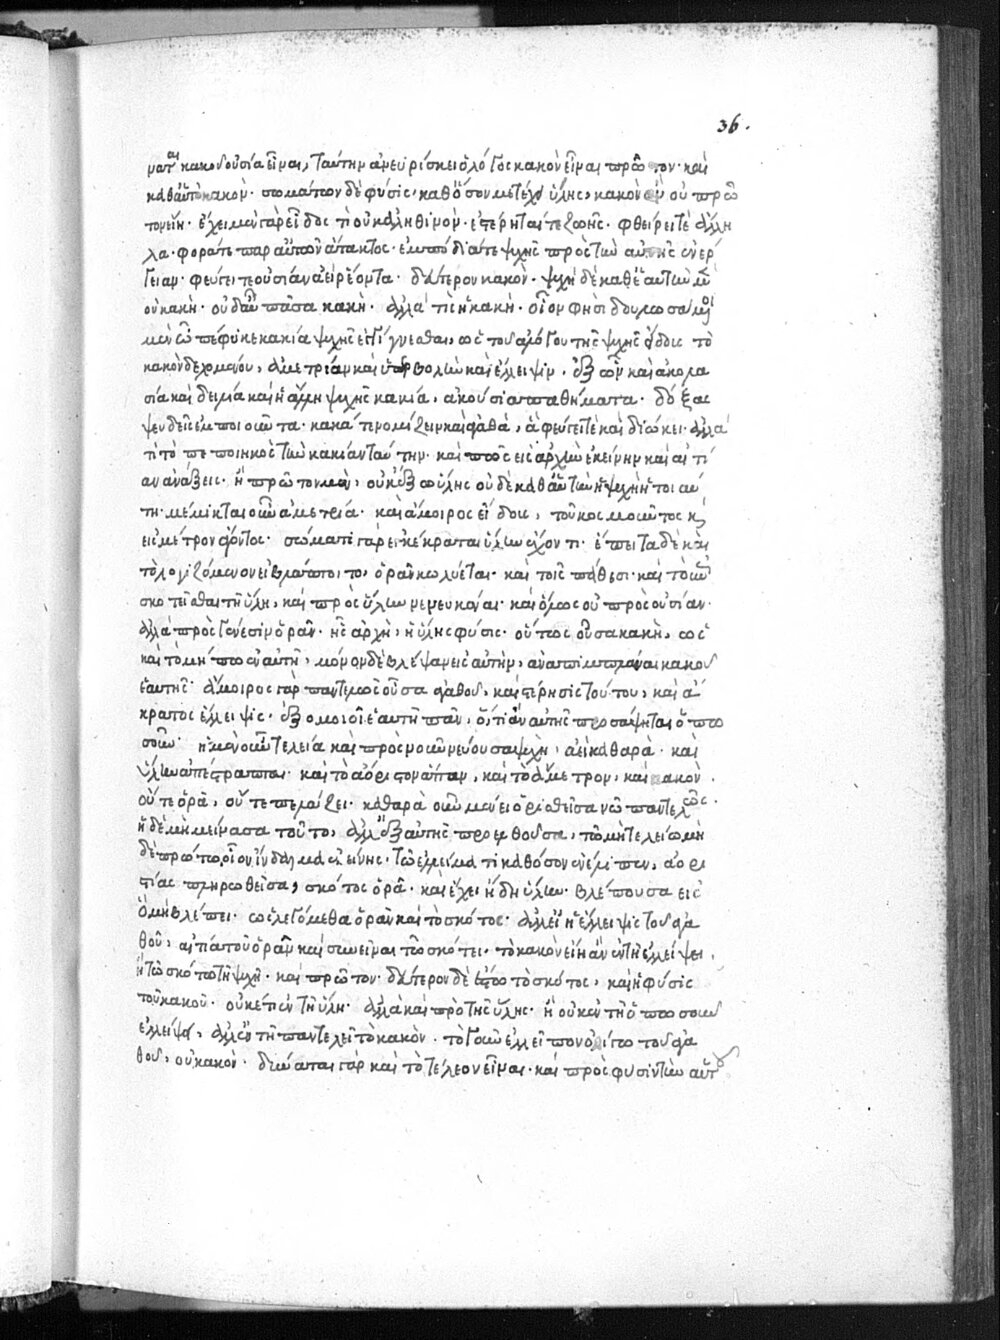 36.
ματος κακοῦ οὐσία εἶναι, ταύτην ἀνευρίσκει ὁ λόγος κακὸν εἶναι πρῶτον· καὶ
καθ' αὑτὸ κακὸν· σωμάτων δὲ φύσις, καθ' ὅσον μετέχει ὕλης, κακὸν ἂν οὐ πρῶ
τον εἴη· ἔχει μὲν γὰρ εἶδος τὶ οὐκ ἀληθινὸν· ἐστέρηταί τε ζωῆς· φθείρει τὲ ἄλλη
λα· φορά τε παρ' αὐτῶν ἄτακτος· ἐμπόδιά τε ψυχῆς πρὸς τὴν αὐτῆς ἐνέρ
γειαν· φεύγει τε οὐσίαν ἀεὶ ῥέοντα· δεύτερον κακὸν· ψυχὴ δὲ καθ' ἑαυτὴν μὲν
οὐ κακὴ· οὐδ' αὖ πᾶσα κακὴ· ἀλλὰ τίς ἡ κακὴ· οἷον φησὶ δουλωσάμενοι
μὲν ᾧ πέφυκε κακία ψυχῆς ἐγγίγνεσθαι, ὡς τοῦ ἀλόγου τῆς ψυχῆς εἴδους τὸ
κακὸν δεχομένου, ἀμετρίαν καὶ ὑπερβολὴν καὶ ἔλλειψιν, ἐξ ὧν καὶ ἀκολα
σία καὶ δειλία καὶ ἡ ἄλλη ψυχῆς κακία, ἀκούσια παθήματα· δόξας
ψευδεῖς ἐμποιοῦντα· κακά τε νομίζειν καὶ ἀγαθὰ, ἃ φεύγει τὲ καὶ διώκει· ἀλλὰ
τί τὸ πεποιηκὸς τὴν κακίαν ταύτην· καὶ πῶς εἰς ἀρχὴν ἐκείνην καὶ αἰτί
αν ἀνάξεις· ἢ πρῶτον μὲν, οὐκ ἔξω ὕλης οὐδὲ καθ' αὑτὴν ἡ ψυχὴ ἡ τοιαύ
τη· μέμικται οὖν ἀμετρία· καὶ ἄμοιρος εἴδους, τοῦ κοσμοῦντος καὶ
εἰς μέτρον ἄγοντος· σώματι γὰρ ἐγκέκραται ὕλην ἔχοντι· ἔπειτα δὲ καὶ
τὸ λογιζόμενον εἰ βλάπτοιτο, ὁρᾶν κωλύεται· καὶ τοῖς πάθεσι· καὶ τῷ ἐπι
σκοτεῖσθαι τῇ ὕλῃ, καὶ πρὸς ὕλην νενευκέναι· καὶ ὅλως οὐ πρὸς οὐσίαν·
ἀλλὰ πρὸς γένεσιν ὁρᾶν· ἧς ἀρχὴ, ἡ ὕλης φύσις· οὕτως οὖσα κακὴ, ὡς
καὶ τὸ μήπω ἐν αὐτῇ, μόνον δὲ βλέψαν εἰς αὐτὴν, ἀναπιμπλάναι κακοῦ
ἑαυτῆς· ἄμοιρος γὰρ παντελῶς οὖσα ἀγαθοῦ, καὶ στέρησις τούτου, καὶ ἄ
κρατος ἔλλειψις· ἐξομοιοῖ ἑαυτῇ πᾶν, ὅ,τι ἂν αὐτῆς προσάψηται ὁπω
σοῦν· ἡ μὲν οὖν τελεία καὶ πρὸς νοῦν νεύουσα ψυχὴ, ἀεὶ καθαρὰ· καὶ
ὕλην ἀπέστραπται· καὶ τὸ ἀόριστον ἅπαν, καὶ τὸ ἄμετρον, καὶ κακὸν
οὔτε ὁρᾷ, οὔτε πελάζει· καθαρὰ οὖν μένει ὁρισθεῖσα νῷ παντελῶς·
ἡ δὲ μὴ μείνασα τοῦτο, ἀλλ' ἐξ αὐτῆς προελθοῦσα, τῷ μὴ τελείῳ μη
δὲ πρώτῳ, οἷον ἴνδαλμα ἐκείνης· τῷ ἐλλείμματι καθόσον ἐνέλιπεν, ἀορι
στίας πληρωθεῖσα, σκότος ὁρᾷ· καὶ ἔχει ἤδη ὕλην· βλέπουσα εἰς
ὃ μὴ βλέπει· ὡς λεγόμεθα ὁρᾶν καὶ τὸ σκότος· ἀλλ' εἰ ἡ ἔλλειψις τοῦ ἀγα
θοῦ, αἰτία τοῦ ὁρᾶν καὶ συνεῖναι τῷ σκότει· τὸ κακὸν εἴη ἂν ἐν τῇ ἐλλείψει
ἢ τῷ σκότῳ τῇ ψυχῇ· καὶ πρῶτον· δεύτερον δὲ ἔστω τὸ σκότος, καὶ ἡ φύσις
τοῦ κακοῦ· οὐκέτι ἐν τῇ ὕλῃ· ἀλλὰ καὶ πρὸ τῆς ὕλης· ἢ οὐκ ἐν τῇ ὁπωσοῦν
ἐλλείψει, ἀλλ' ἐν τῇ παντελεῖ τὸ κακὸν· τὸ γοῦν ἐλλεῖπον ὀλίγῳ τοῦ ἀγα
θοῦ, οὐ κακὸν· δύναται γὰρ καὶ τὸ τέλεον εἶναι· καὶ πρὸς φύσιν τὴν αὐτοῦ